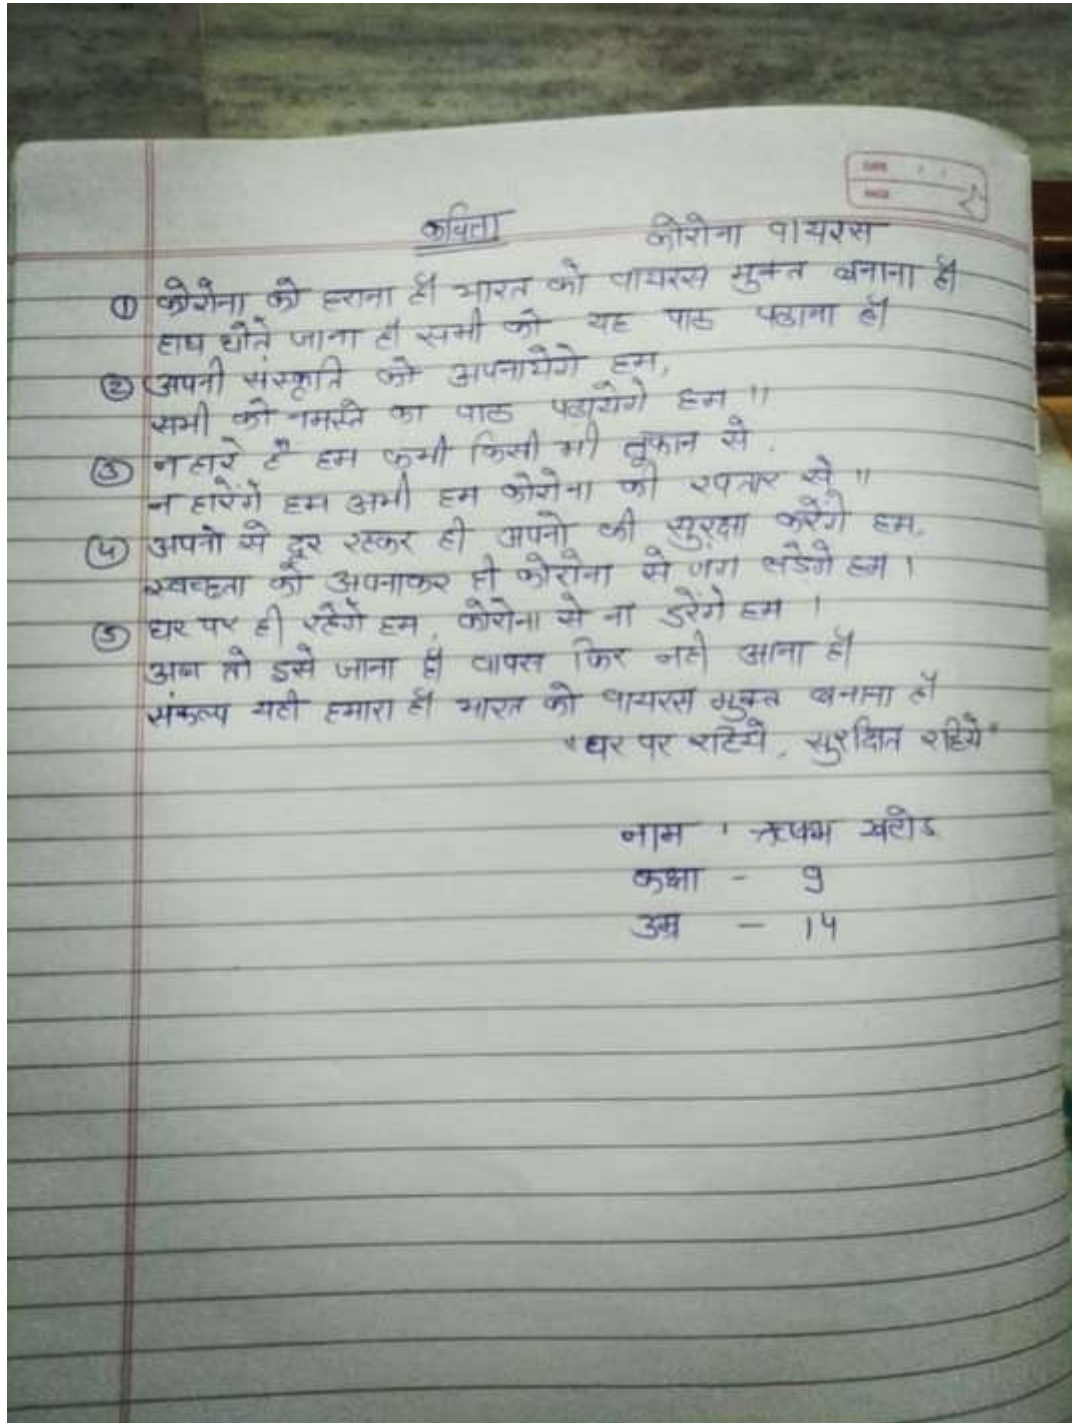 DATE
PAGE
कविता कोरोना वायरस
① कोरोना को हराना हैं भारत को वायरस मुक्त बनाना हैं
हाथ धोतें जाना हैं सभी को यह पाठ पढाना हैं
② अपनी संस्कृति को अपनायेगे हम,
सभी को नमस्ते का पाठ पढायेगे हम ॥
③ न हारे है हम कभी किसी भी तूफान से,
न हारेंगे हम अभी हम कोरोना की रफ्तार से ॥
④ अपनो से दूर रहकर ही अपनो की सुरक्षा करेंगे हम,
स्वच्छता को अपनाकर ही कोरोना से जंग लडेगे हम ।
⑤ घर पर ही रहेंगे हम, कोरोना से ना डरेंगे हम ।
अब तो इसे जाना हैं वापस फिर नही आना हैं
संकल्प यही हमारा हैं भारत को वायरस मुक्त बनाना हैं
"घर पर रहिये, सुरक्षित रहिये"
नाम : ऋषभ खटोड
कक्षा - 9
उम्र - 14